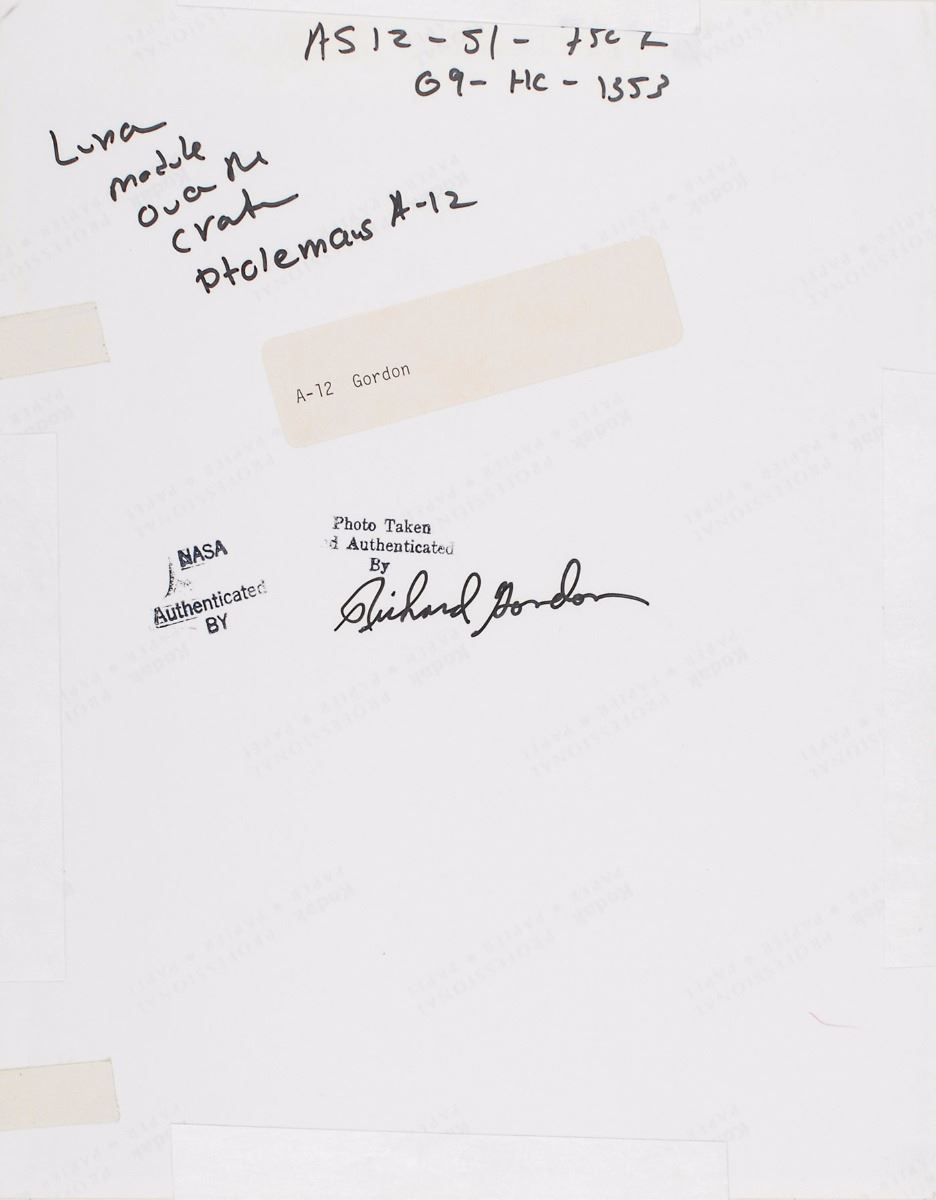 AS12-51-
G9-HC-1353
Luna
module
over the
crater
ptolemaus A-12
A-12 Gordon
Photo Taken
d Authenticated
By
Richard Gordon
NASA
Authenticated
BY
Kodak
PROFESSIONAL
PAPER * PAPIER